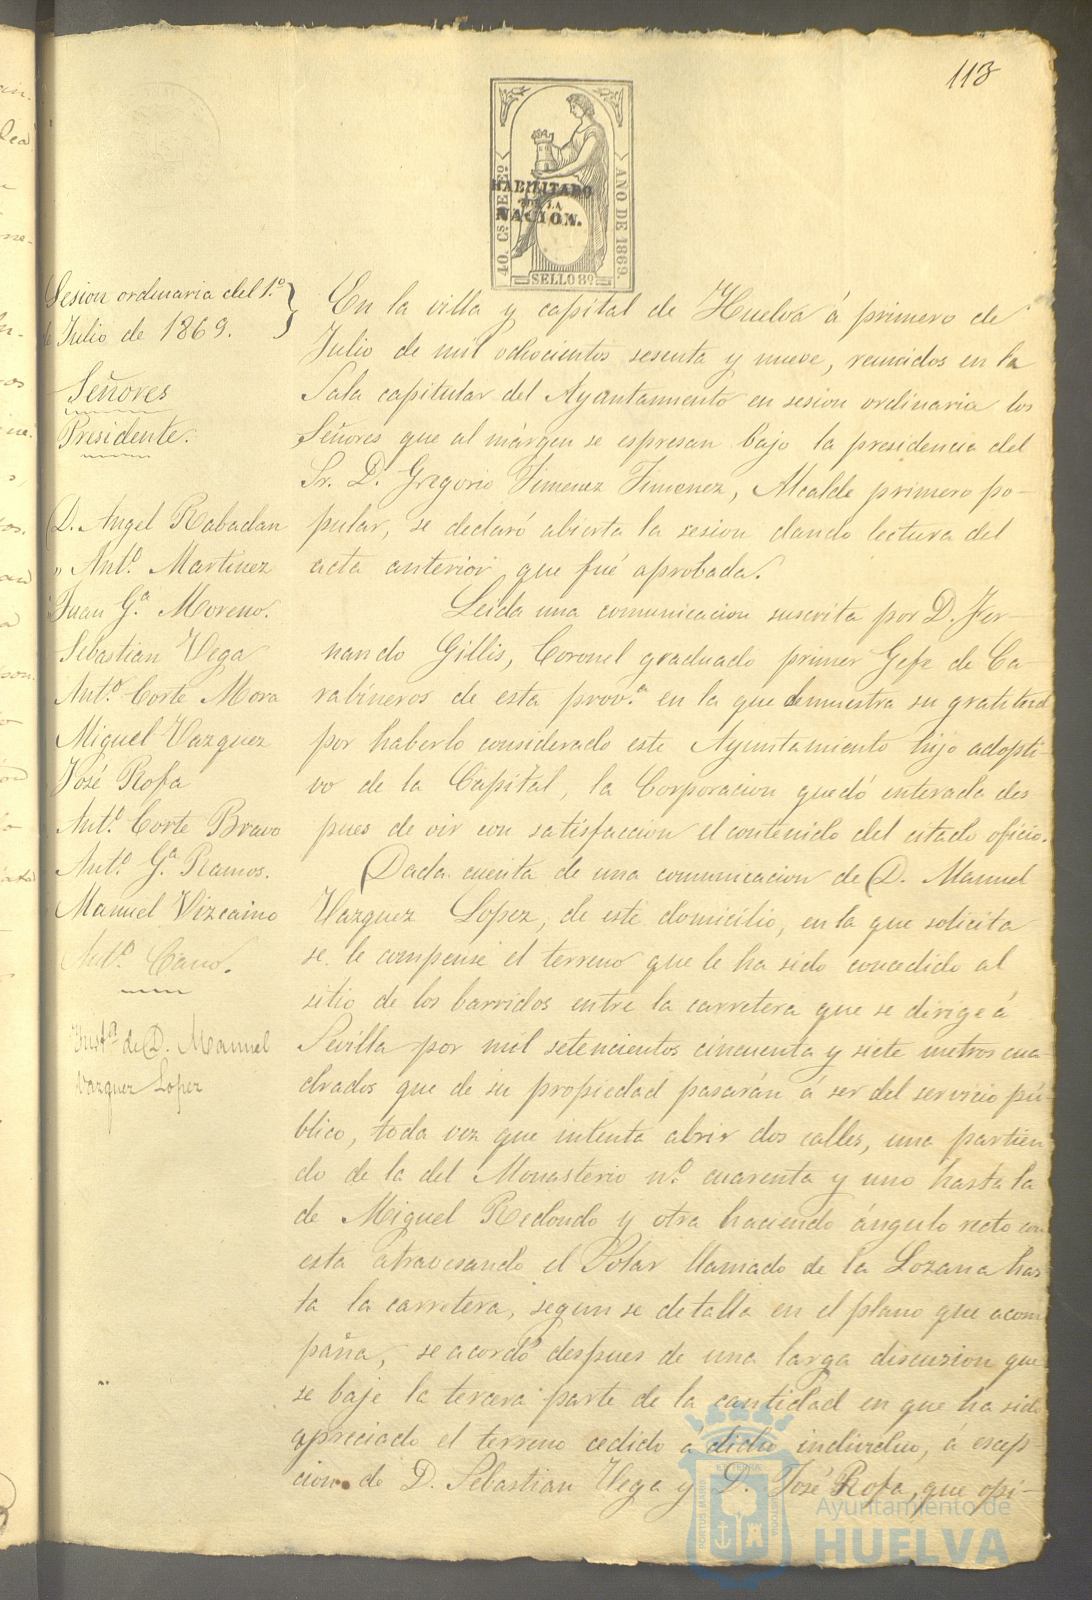 113
40. Cs. DE Eº.
AÑO DE 1869.
HABILITADO
POR LA
NACION.
SELLO 8º
Sesion ordinaria del 1.º
de Julio de 1869.
Señores
Presidente.
D. Angel Rabadan
" Ant.º Martinez
" Juan G.ª Moreno.
Sebastian Vega
Ant.º Corte Mora
Miguel Vazquez
José Rofa
Ant.º Corte Bravo
Ant.º G.ª Ramos.
Manuel Vizcaino
Ant.º Cano.
Inst.ª de D. Manuel
Vazquez Lopez
En la villa y capital de Huelva á primero de
Julio de mil ochocientos sesenta y nueve, reunidos en la
Sala capitular del Ayuntamiento en sesion ordinaria los
Señores que al márgen se espresan bajo la presidencia del
Sr. D. Gregorio Jimenez Jimenez, Alcalde primero po-
pular, se declaró abierta la sesion dando lectura del
acta anterior que fué aprobada.
Leida una comunicacion suscrita por D. Fer-
nando Gillis, Coronel graduado primer Gefe de Ca-
rabineros de esta prov.ª en la que demuestra su gratitud
por haberlo considerado este Ayuntamiento hijo adopti-
vo de la Capital, la Corporacion quedó enterada des-
pues de oir con satisfaccion el contenido del citado oficio.
Dada cuenta de una comunicacion de D. Manuel
Vazquez Lopez, de este domicilio, en la que solicita
se le compense el terreno que le ha sido concedido al
sitio de los barridos entre la carretera que se dirige á
Sevilla por mil setecientos cincuenta y siete metros cua-
drados que de su propiedad pasarán á ser del servicio pú-
blico, toda vez que intenta abrir dos calles, una partien
do de la del Monasterio n.º cuarenta y uno hasta la
de Miguel Redondo y otra haciendo ángulo recto con
esta atravesando el Solar llamado de la Lozana has
ta la carretera, segun se detalla en el plano que acom
paña, se acordó despues de una larga discusion que
se baje la tercera parte de la cantidad en que ha sido
apreciado el terreno cedido á dicho individuo, á escep-
cion de D. Sebastian Vega y D. José Rofa, que opi-
Ayuntamiento de
HUELVA